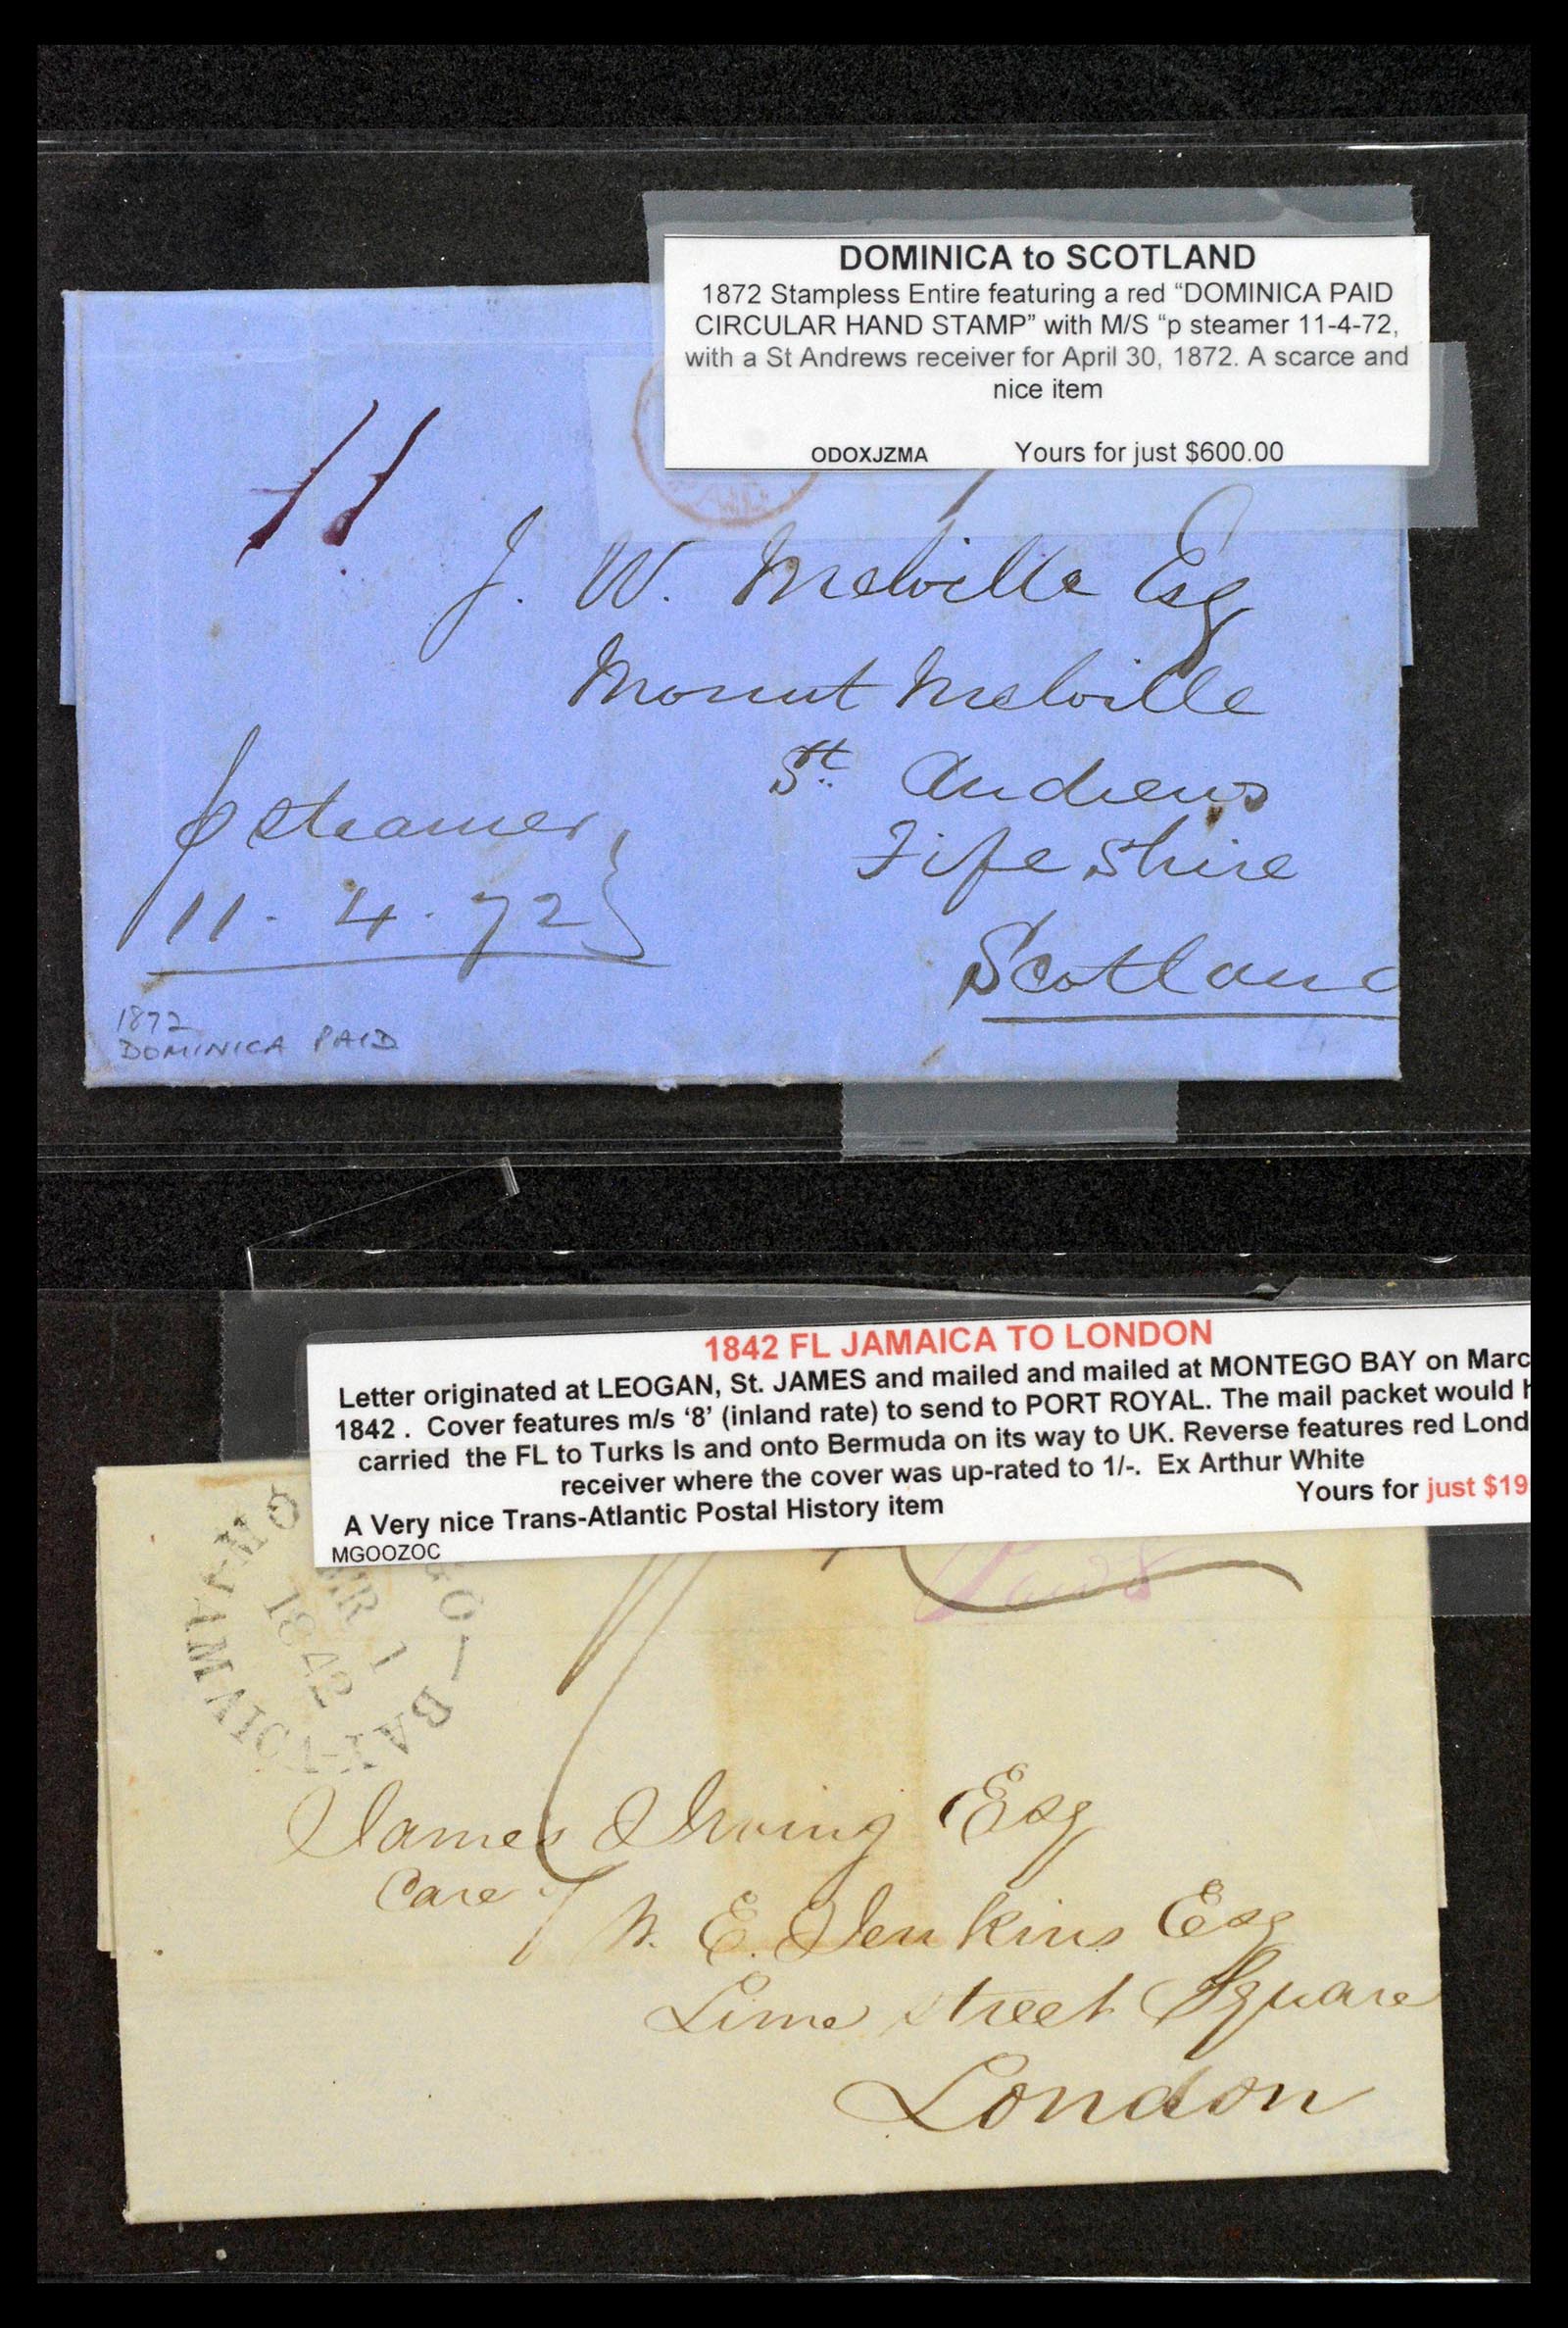 DOMINICA to SCOTLAND
1872 Stampless Entire featuring a red “DOMINICA PAID
CIRCULAR HAND STAMP” with M/S “p steamer 11-4-72,
with a St Andrews receiver for April 30, 1872. A scarce and
nice item
ODOXJZMA Yours for just $600.00
J. W. Melville Esq
Mount Melville
St. Andrews
Fife Shire
Scotland
p steamer
11. 4. 72
1872
DOMINICA PAID
1842 FL JAMAICA TO LONDON
Letter originated at LEOGAN, St. JAMES and mailed and mailed at MONTEGO BAY on Marc
1842 . Cover features m/s ‘8’ (inland rate) to send to PORT ROYAL. The mail packet would h
carried the FL to Turks Is and onto Bermuda on its way to UK. Reverse features red Lond
receiver where the cover was up-rated to 1/-. Ex Arthur White
Yours for just $19
A Very nice Trans-Atlantic Postal History item
MGOOZOC
GO BAY
MR 1
1842
JAMAICA
Paid 8
James Irving Esq
Care of
W. E. Jenkins Esq
Lime Street Square
London